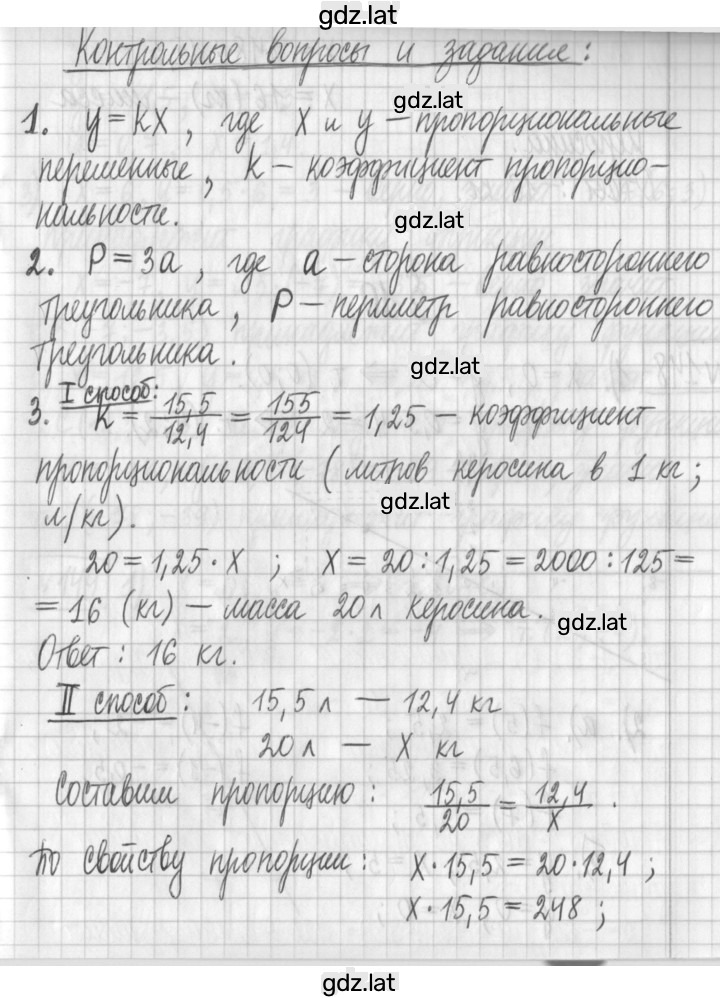 gdz.lat
Контрольные вопросы и задания:
gdz.lat
1. y = kx, где x и y — пропорциональные
переменные, k — коэффициент пропорцио-
нальности.
gdz.lat
2. P = 3a, где a — сторона равностороннего
треугольника, P — периметр равностороннего
треугольника.
gdz.lat
3. I способ:
k = 15,5/12,4 = 155/124 = 1,25 — коэффициент
пропорциональности (литров керосина в 1 кг;
gdz.lat
л/кг).
20 = 1,25 · x ; x = 20 : 1,25 = 2000 : 125 =
= 16 (кг) — масса 20 л керосина.
gdz.lat
Ответ: 16 кг.
II способ: 15,5 л — 12,4 кг
20 л — x кг
Составим пропорцию: 15,5/20 = 12,4/x .
По свойству пропорции: x · 15,5 = 20 · 12,4 ;
x · 15,5 = 248 ;
gdz.lat